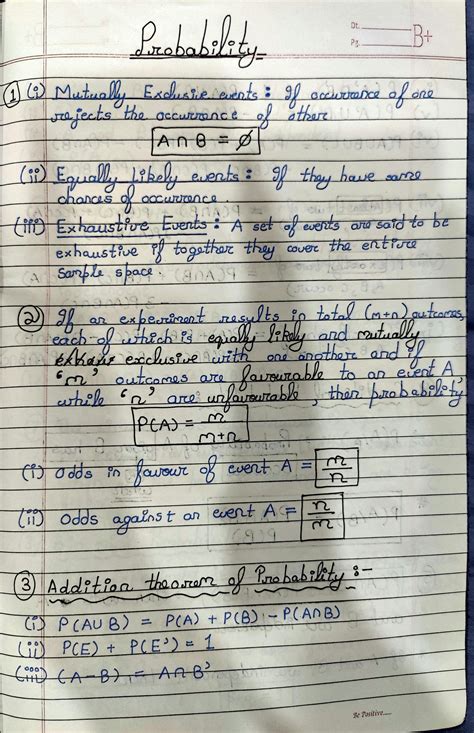 Probability
Dt.
Pg.
B+
① (i) Mutually Exclusive events : If occurrence of one
rejects the occurrence of other
A∩B = ∅
(ii) Equally likely events : If they have same
chances of occurrence
(iii) Exhaustive Events : A set of events are said to be
exhaustive if together they cover the entire
sample space
② If an experiment results in total (m+n) outcomes,
each of which is equally likely and mutually
exclusive with one another and if
'm' outcomes are favourable to an event A
while 'n' are unfavourable, then probability
P(A) = m/m+n
(i) Odds in favour of event A = m/n
(ii) Odds against an event A = n/m
③ Addition theorem of Probability :-
(i) P(A∪B) = P(A) + P(B) - P(A∩B)
(ii) P(E) + P(E') = 1
(iii) (A-B) = A∩B'
Be Positive.....